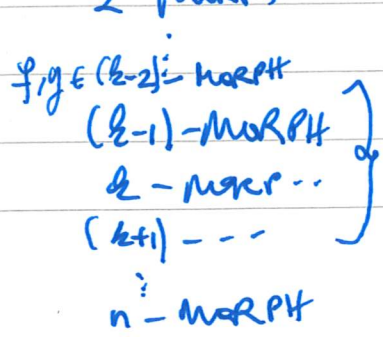 ⋮
f,g ∈ (k-2) - MORPH
(k-1) - MORPH
k - MORP ..
(k+1) - - -
⋮
n - MORPH